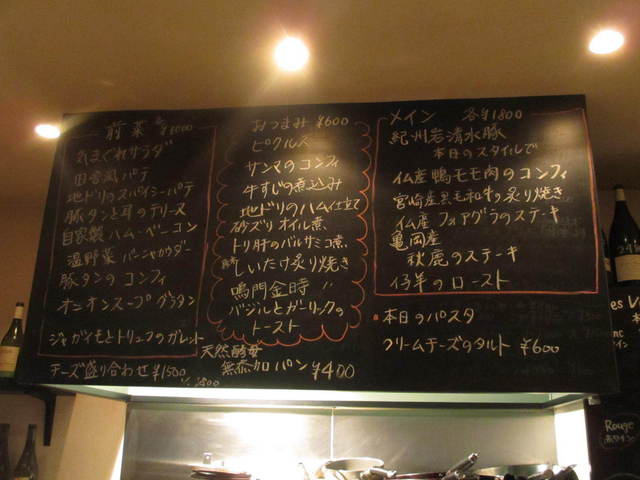 前菜 各¥1000
気まぐれサラダ
田舎風パテ
地ドリのスパイシーパテ
豚タンと耳のテリーヌ
自家製ハム・ベーコン
温野菜バーニャカウダー
豚タンのコンフィ
オニオンスープグラタン
ジャガイモとトリュフのガレット
チーズ盛り合わせ ¥1500
おつまみ ¥600
ピクルス
サンマのコンフィ
牛すじの煮込み
地ドリのハム仕立て
砂ズリオイル煮
トリ肝のバルサミコ煮
しいたけ炙り焼き
鳴門金時 〃
バジルとガーリックの
トースト
天然酵母
無添加パン ¥400
メイン 各¥1800
紀州岩清水豚
本日のスタイルで
仏産鴨モモ肉のコンフィ
宮崎産黒毛和牛の炙り焼き
仏産フォアグラのステーキ
亀岡産
秋鹿のステーキ
仔羊のロースト
本日のパスタ
クリームチーズのタルト ¥600
Rouge